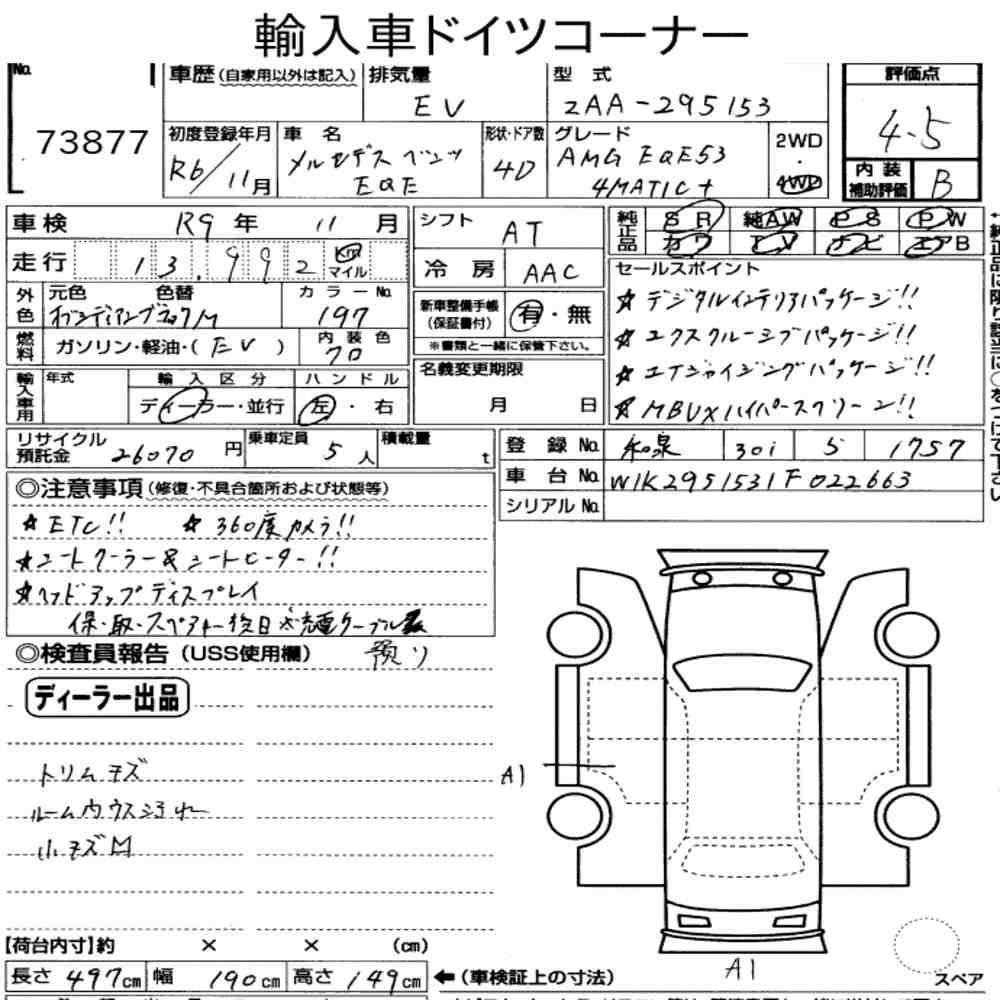 輸入車ドイツコーナー
No.
73877
車歴(自家用以外は記入)
排気量
EV
型 式
ZAA-295153
評価点
4.5
初度登録年月
R6/11月
車 名
メルセデス ベンツ
EQE
形状・ドア数
4D
グレード
AMG EQE53
4MATIC+
2WD
・
4WD
内装
補助評価
B
車検 R9年 11月
走行 13,992 Km
マイル
シフト AT
冷 房 AAC
純正品
SR 純AW PS PW
カワ TV ナビ エアB
外色
元色 色替
オブシディアンブラックM
カラーNo.
197
新車整備手帳
(保証書付)
有・無
※書類と一緒に保管下さい。
燃料
ガソリン・軽油・( EV )
内装色
クロ
セールスポイント
☆デジタルインテリアパッケージ!!
☆エクスクルーシブパッケージ!!
☆エナジャイジングパッケージ!!
☆MBUXハイパースクリーン!!
輸入車用
年式
輸入区分
ディーラー・並行
ハンドル
左・右
名義変更期限
月 日
リサイクル
預託金
26070円
乗車定員
5人
積載量
t
登 録 No. 和泉 301 5 1757
車 台 No. W1K2951531F022663
シリアル No.
◎注意事項(修復・不具合箇所および状態等)
☆ETC!! ☆360度カメラ!!
☆シートクーラー&シートヒーター!!
☆ヘッドアップディスプレイ
保・取・スペアキー後日 ※充電ケーブル
預り
◎検査員報告(USS使用欄)
ディーラー出品
トリムキズ
ルームウウス汚れ
小キズM
A1
A1
【荷台内寸】約 × × (cm)
長さ 497cm 幅 190cm 高さ 149cm
←(車検証上の寸法)
スペア